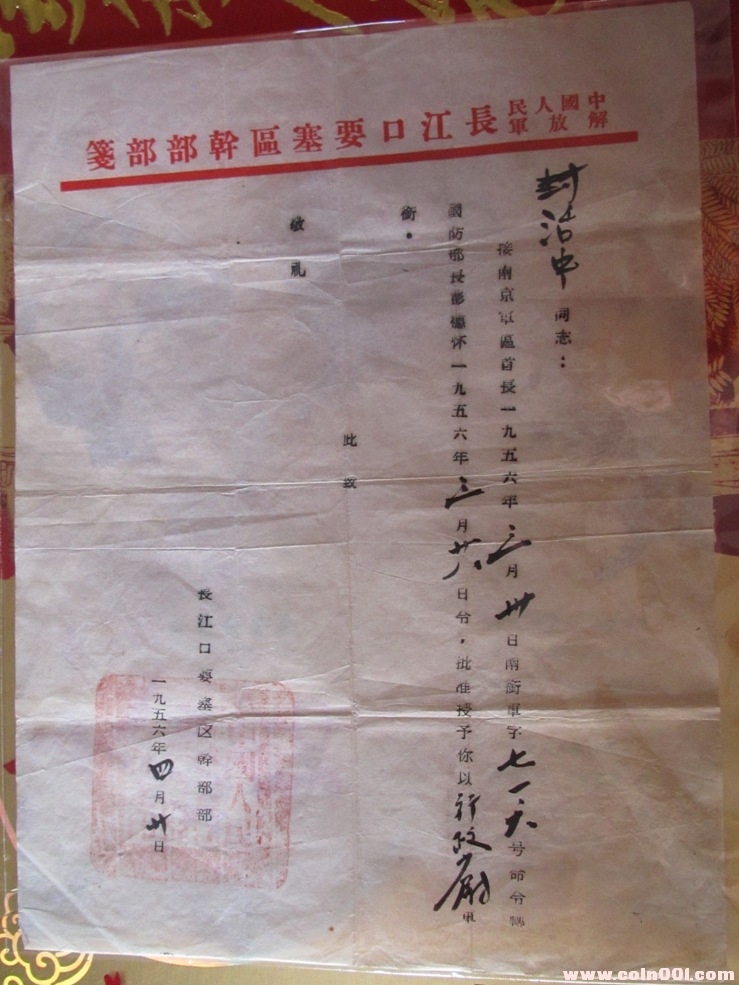 中國人民解放軍長江口要塞區幹部部箋
封浩申 同志：
接南京軍區首長一九五六年三月卅日南銜軍字七一六号命令轉
國防部長彭德怀一九五六年三月廿八日令，批准授予你以行政尉軍
銜。
此致
敬礼
長江口要塞区幹部部
一九五六年四月廿日
www.coin001.com